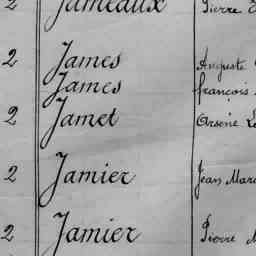 2 Jameaux Pierre
2 James Auguste
James françois
2 Jamet Arsène
2 Jamier Jean
2 Jamier Pierre